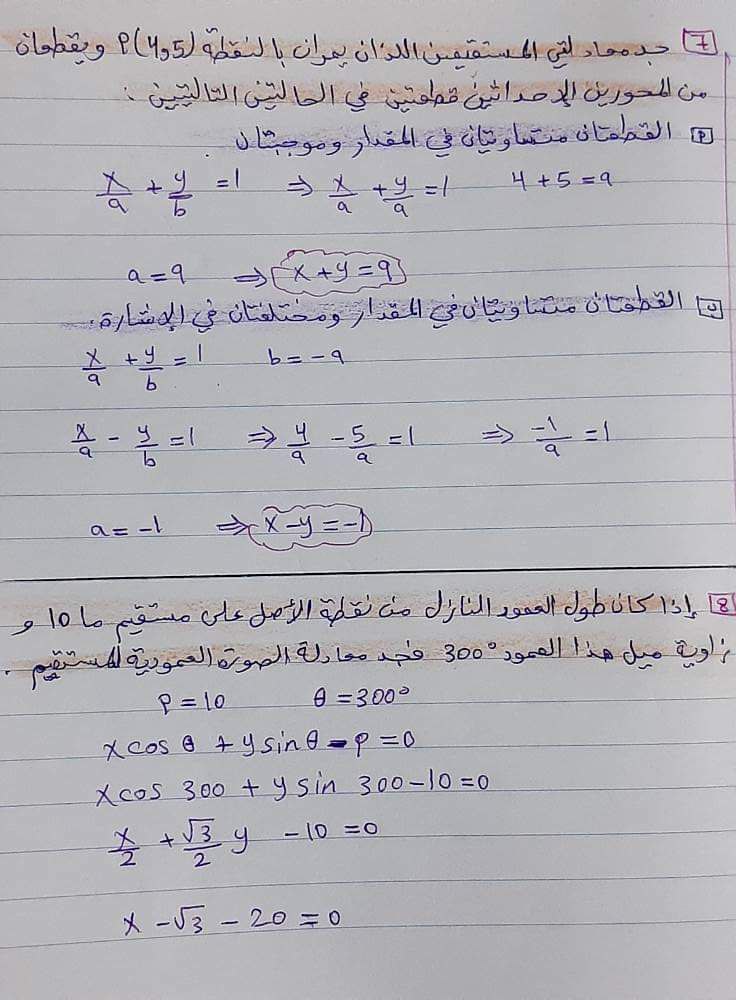 7 جد معادلتي المستقيمين اللذان يمران بالنقطة P(4,5) ويقطعان
من المحورين الإحداثين قطعتين في الحالتين التاليتين :
أ القطعتان متساويتان في المقدار وموجبتان .
x/a + y/b = 1 ⇒ x/a + y/a = 1 4+5=9
a = 9 ⇒ x+y=9
ب القطعتان متساويتان في المقدار ومختلفتان في الإشارة .
x/a + y/b = 1 b = -a
x/a - y/b = 1 ⇒ 4/a - 5/a = 1 ⇒ -1/a = 1
a = -1 ⇒ x-y=-1
8 إذا كان طول العمود النازل من نقطة الأصل على مستقيم ما 10 و
زاوية ميل هذا العمود 300° فجد معادلة الصورة العمودية للمستقيم .
P = 10 θ = 300°
x cos θ + y sin θ - P = 0
x cos 300 + y sin 300 - 10 = 0
x/2 + √3/2 y - 10 = 0
x - √3 - 20 = 0